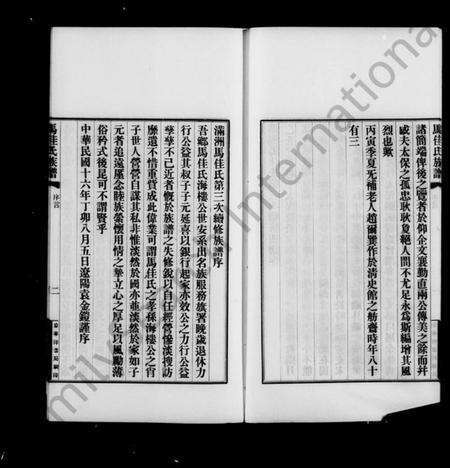 馬佳氏族譜
諸簡端俾後之覽者於仰企文襄勤直兩公傳美之餘而幷
威夫太保之孤忠耿耿負絕人間不尤足永爲斯編增其風
烈也歟
丙寅季夏无補老人趙爾巽作於清史館之勑齋時年八十
有三
滿洲馬佳氏第三次續修族譜序
吾鄉馬佳氏海樓公世安系出名族服務旗署晚歲退休力
行公益其叔子子元延喜以銀行起家亦效公之力行公益
孳孳不已近者慨於族譜之失修銳以自任經營慘淡搜訪
靡遺不惜重貲成此偉業可謂馬佳氏之孝孫海樓公之肖
子世人營營自謀其私非惟淡然於國亦並淡然於家如子
元者追遠厪念睦族縈懷用情之摯立心之厚足以風勵薄
俗矜式後昆可不謂賢乎
中華民國十六年丁卯八月五日遼陽袁金鎧謹序
馬佳氏族譜
序
二